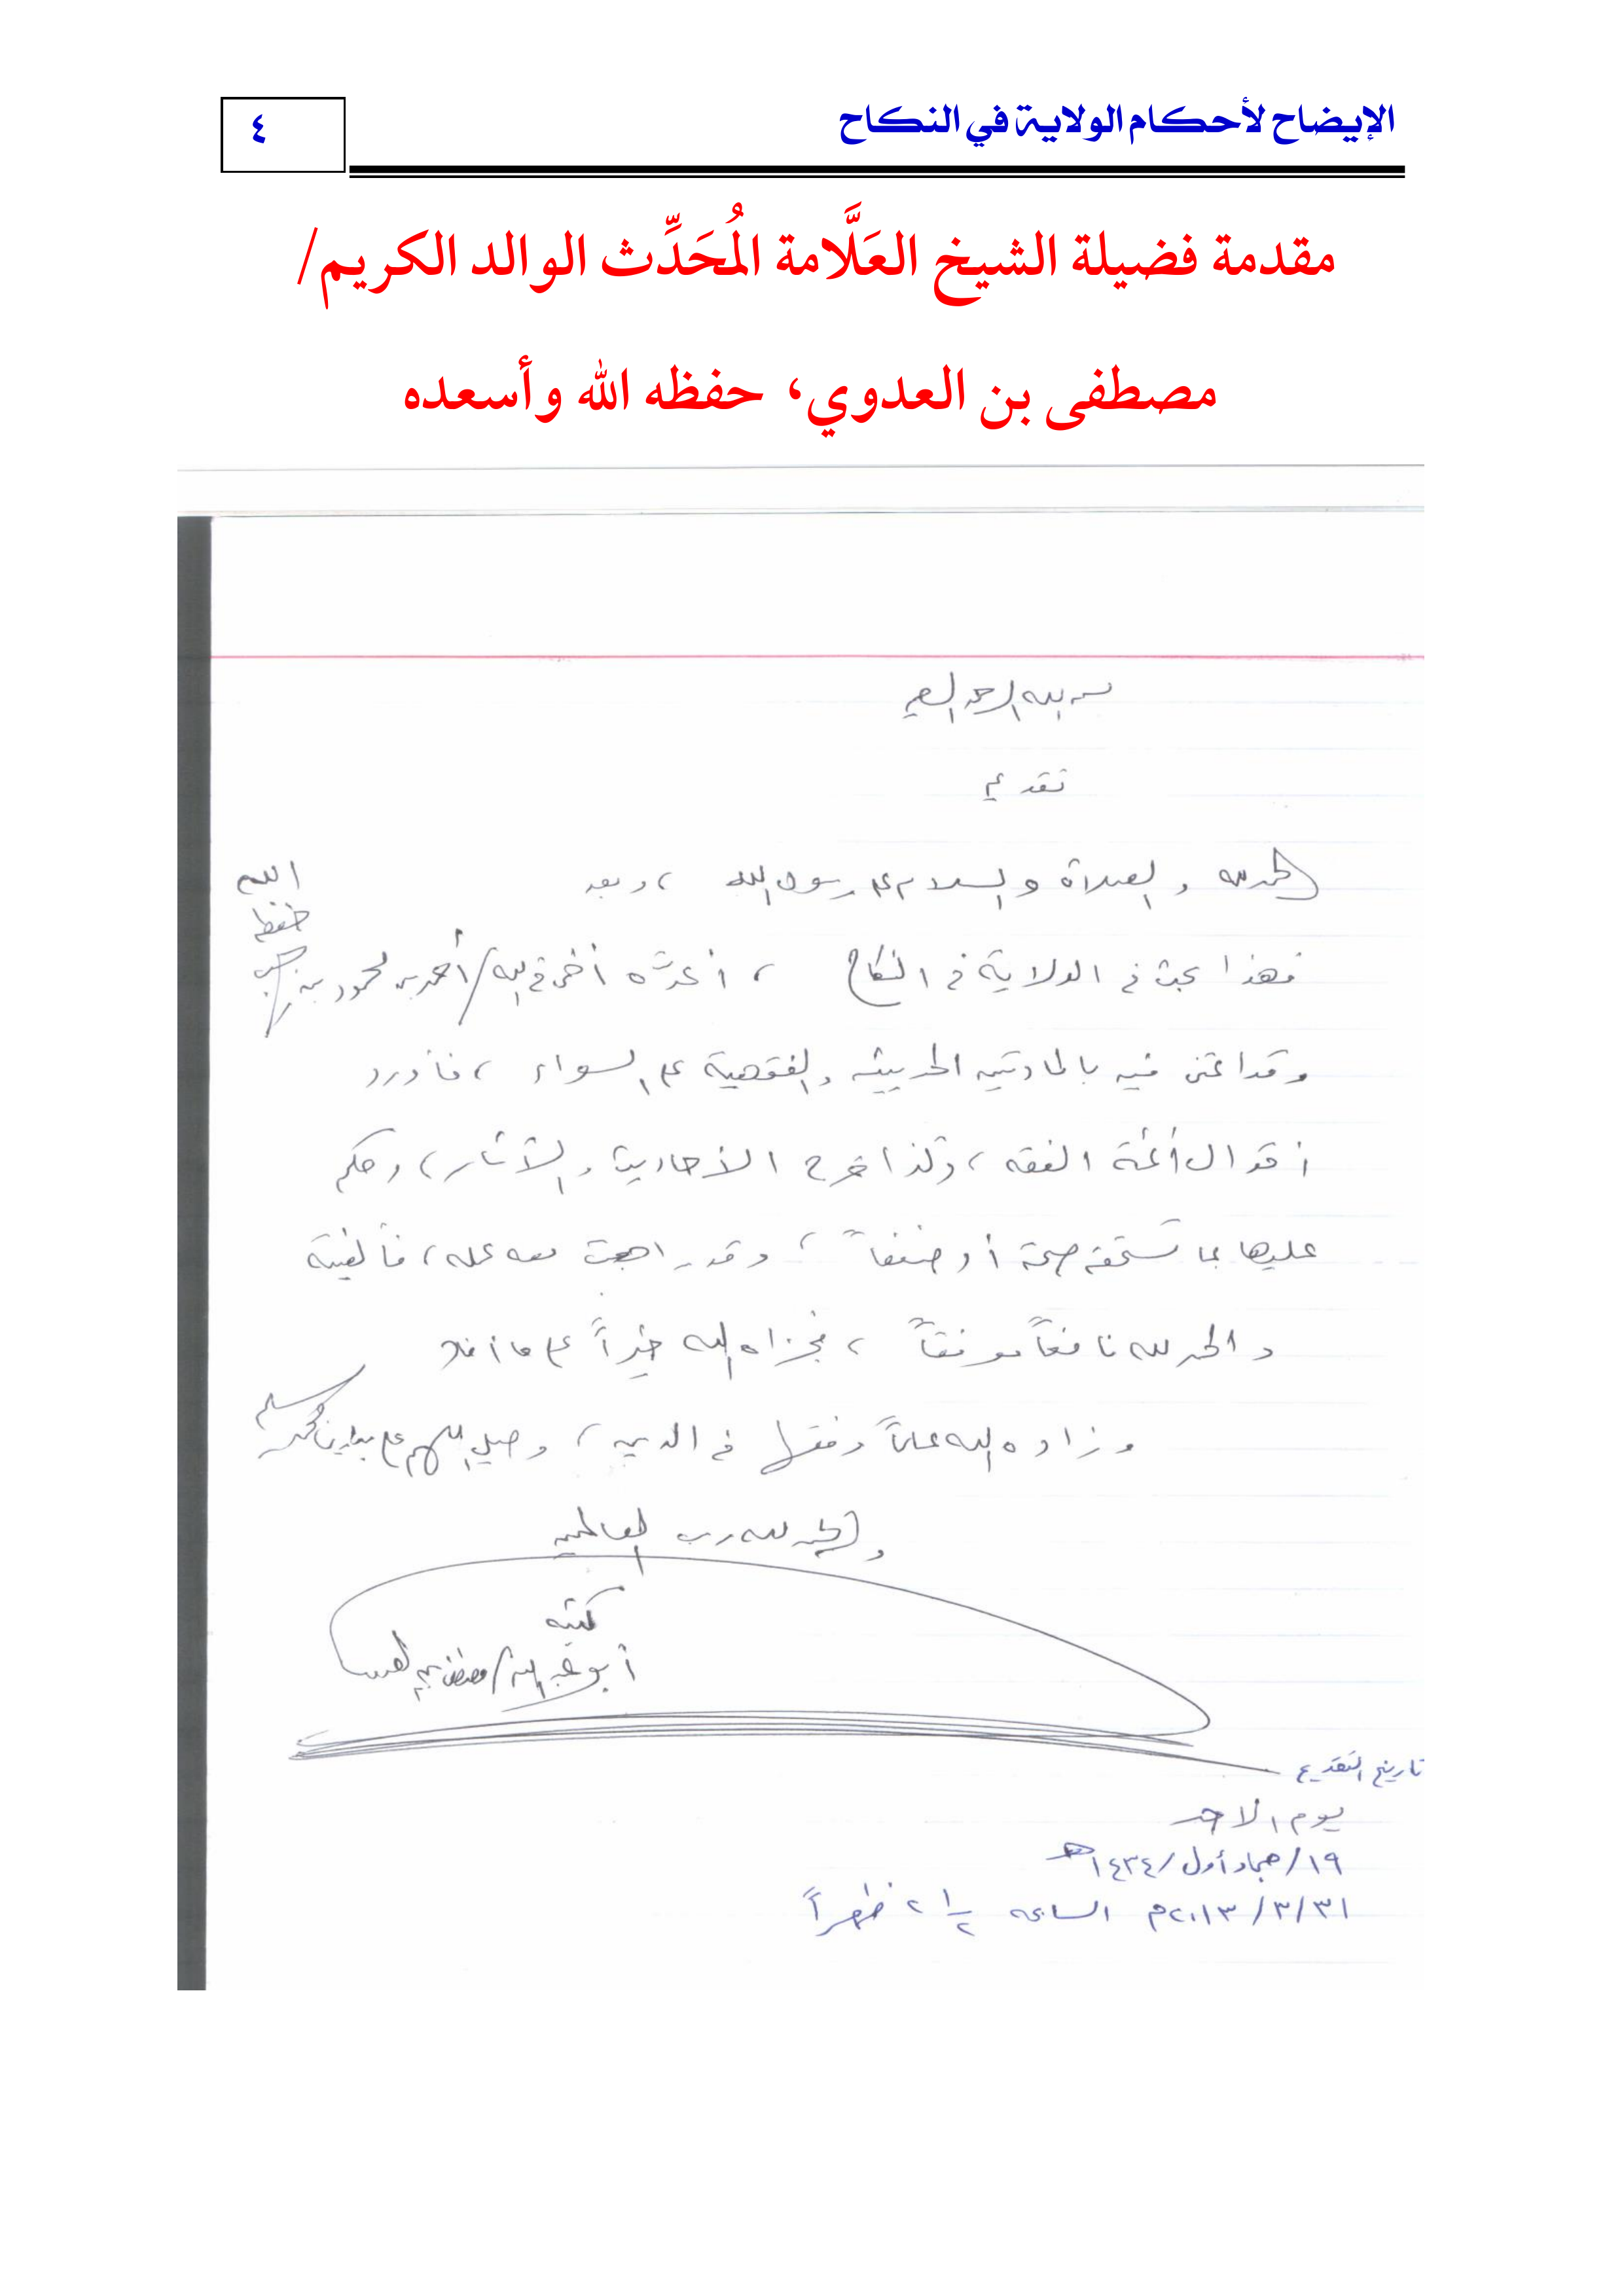 الإيضاح لأحكام الولاية في النكاح
٤
مقدمة فضيلة الشيخ العَلَّامة المُحَدِّث الوالد الكريم/
مصطفى بن العدوي، حفظه الله وأسعده
بسم الله الرحمن الرحيم
تقديم
الحمد لله والصلاة والسلام على رسول الله ، وبعد
فهذا بحث في الولاية في النكاح ، أعدَّه أخي في الله/ أحمد بن محمود بن رجب
حفظه الله
وقد اعتنى فيه بالمادتين الحديثية والفقهية على السواء ، فأورد
أقوال أئمة الفقه ، وكذا خرج الأحاديث والآثار ، وحكم
عليها بما تستحقه صحة أو ضعفاً ، وقد راجعت معه عمله ، فألفيته
والحمد لله نافعاً موفقاً ، فجزاه الله خيراً على ما أفاد
وزاده الله علماً وفقهاً في الدين ، وصلِّ اللهم على نبينا محمد وسلم
والحمد لله رب العالمين
كتبه
أبو عبد الله/ مصطفى بن العدوي
تاريخ التقديم
يوم الاحد
١٩/جماد أول/١٤٣٤هـ
٣١/٣/٢٠١٣م الساعة ٢ ١/٢ ظهراً